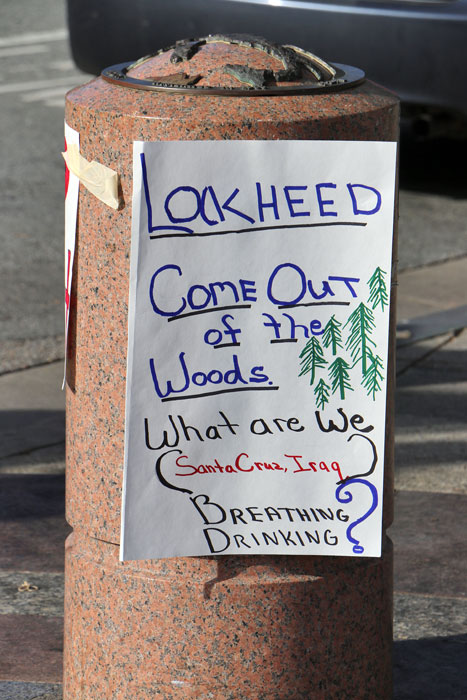 LOCKHEED
COME OUT
of the
Woods.
What are We
(Santa Cruz, Iraq)
BREATHING
DRINKING ?